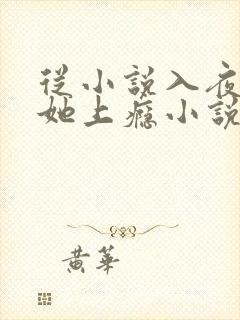 從小說入夜
她上癮小說
黃華